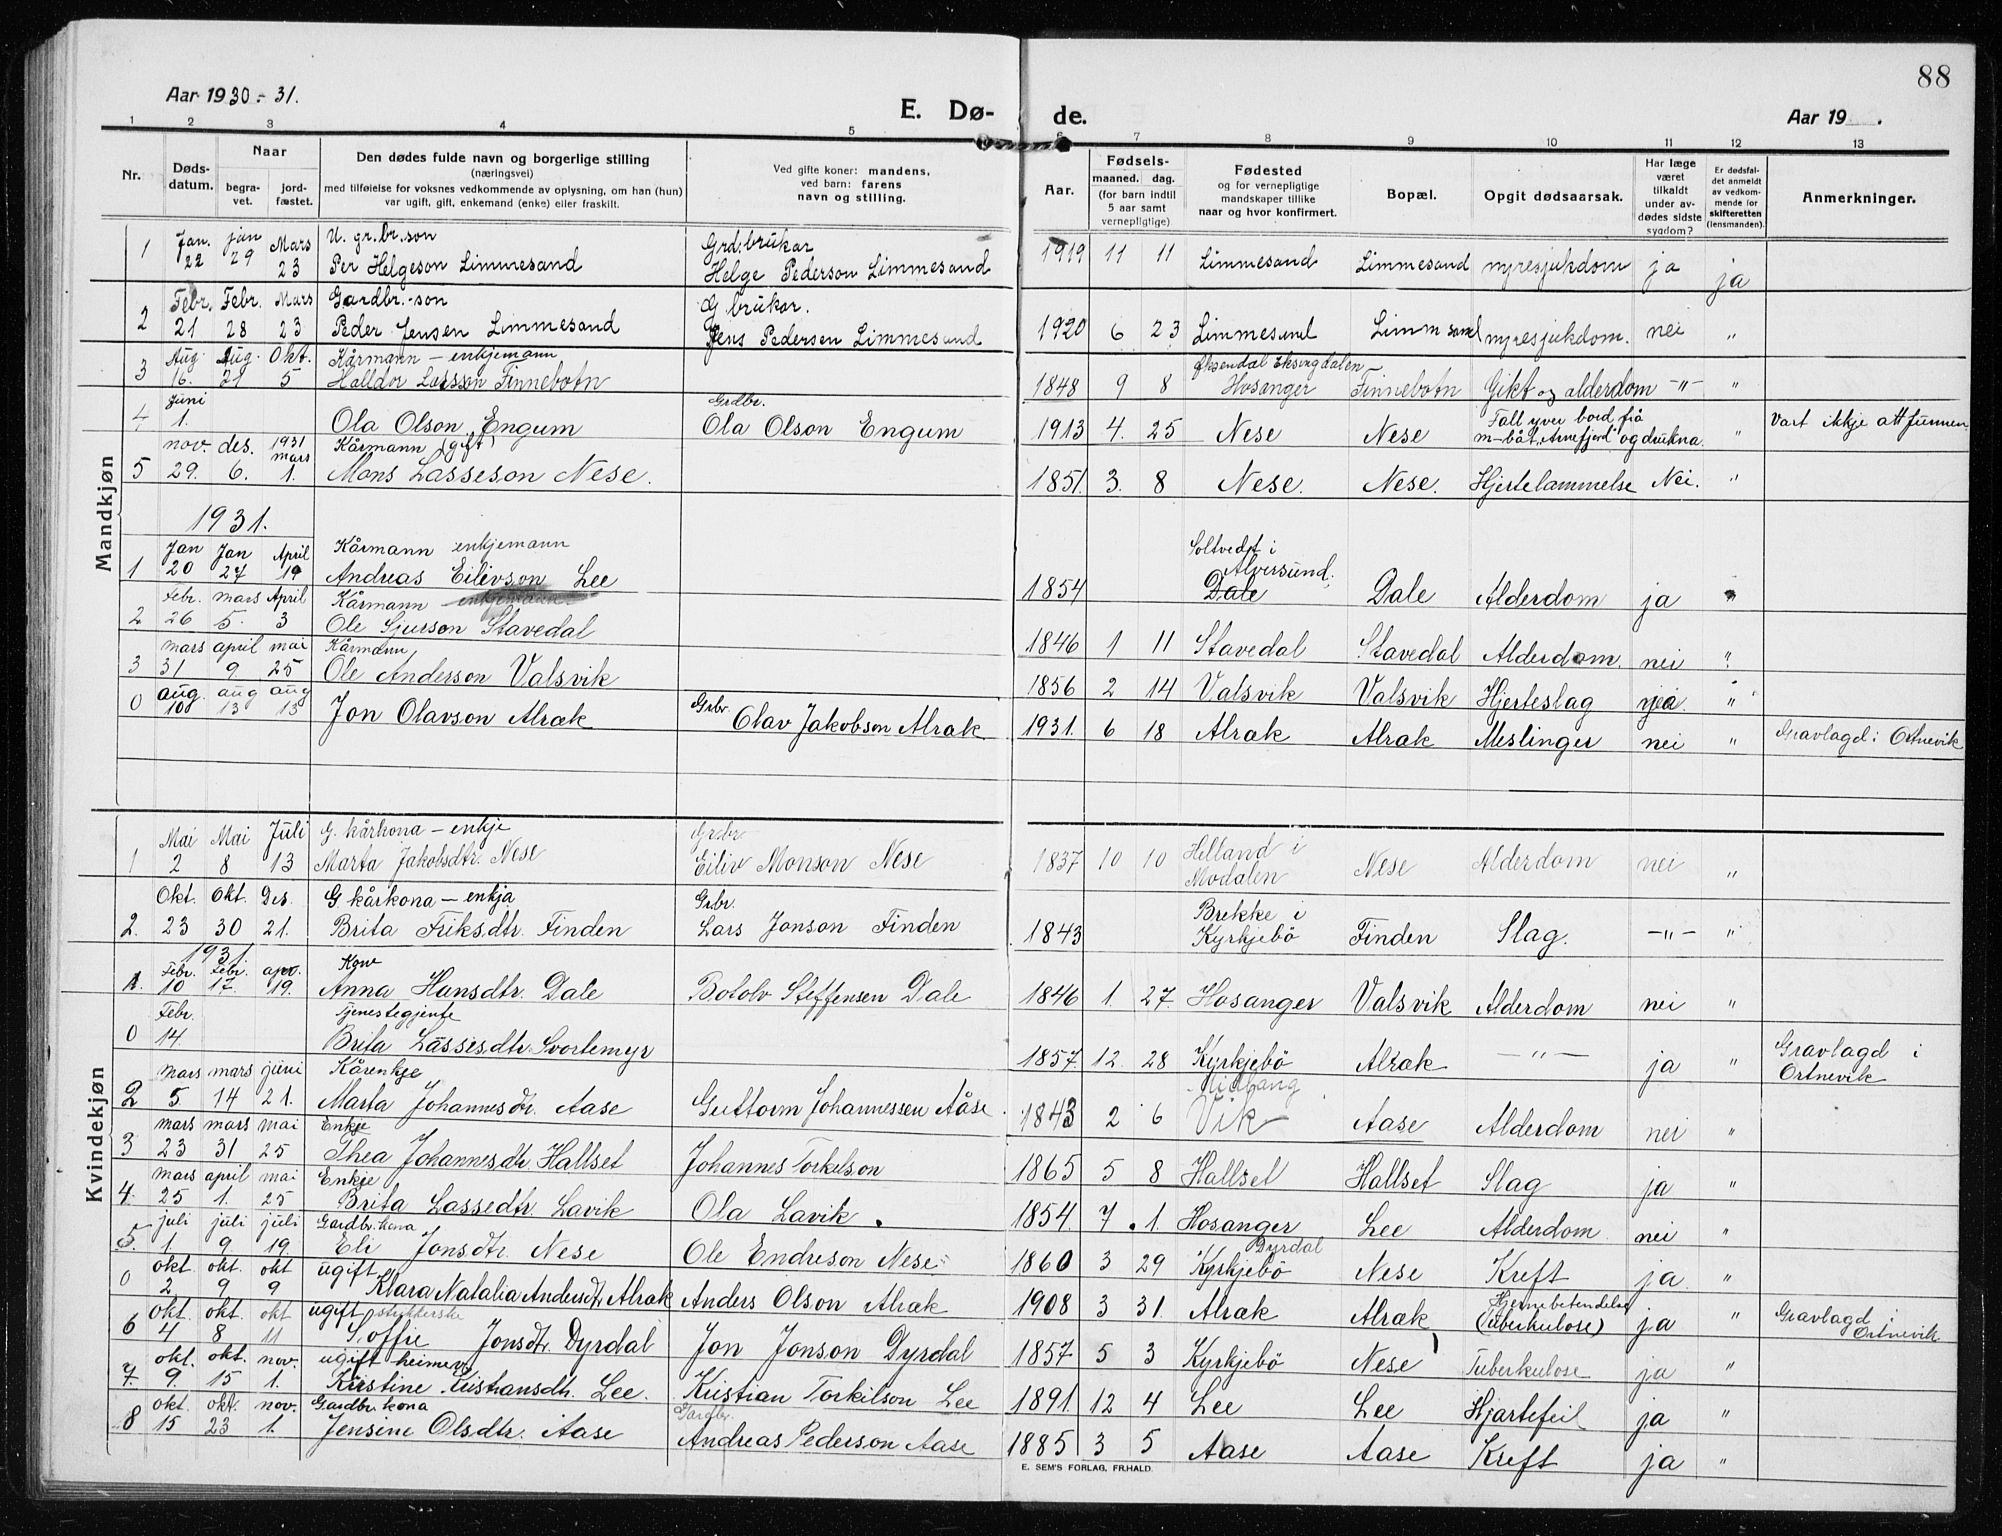 88
Aar 1930-31.
E. Dø-
de.
Aar 19 .
1 2 3 4 5 6 7 8 9 10 11 12 13
Nr.
Døds-datum.
Naar
begra-vet.
jord-fæstet.
Den dødes fulde navn og borgerlige stilling
(næringsvei)
med tilføielse for voksnes vedkommende av oplysning, om han (hun)
var ugift, gift, enkemand (enke) eller fraskilt.
Ved gifte koner: mandens,
ved barn: farens
navn og stilling.
Aar.
Fødsels-
maaned. dag.
(for barn indtil
5 aar samt
vernepligtige)
Fødested
og for vernepligtige
mandskaper tillike
naar og hvor konfirmert.
Bopæl.
Opgit dødsaarsak.
Har læge
været
tilkaldt
under av-
dødes sidste
sygdom?
Er dødsfal-
det anmeldt
av vedkom-
mende for
skifteretten
(lensmanden).
Anmerkninger.
Mandkjøn
Jan. jan Mars U. gr.br.son Grd.brukar
1 22 29 23 Per Helgeson Limmesand Helge Pederson Limmesand 1919 11 11 Limmesand Limmesand nyresjukdom ja ja
Febr. Febr. Mars Gardbr.-son G brukar.
2 21 28 23 Peder Jensen Limmesand Jens Pedersen Limmesand 1920 6 23 Limmesund Limmsand nyresjukdom. nei "
Aug. Aug. Okt. Kårmann - enkjemann Eksingdalen -
3 16. 21 5 Halldor Lasson Finnebotn 1848 9 8 Hosanger Finnebotn Gikt og alderdom -"- "
Juni Grdbr. Fall yver bord frå
4 1. Ola Olson Engum Ola Olson Engum 1913 4. 25 Nese Nese m-båt "Arnefjord" og drukna. " Vart ikkje attfunnen
nov. des. 1931 mars Kårmann (gift)
5 29. 6. 1. Mons Lasseson Nese. 1851. 3. 8 Nese. Nese. Hjertelammelse Nei. "
1931.
Jan Jan April Kårmann enkjemann Soltvedt i Alversund.
1 20 27 19 Andreas Eilivson Lee 1854 Dale Dale Alderdom ja "
Febr. mars April Kårmann enkjemann
2 26 5. 3 Ole Sjurson Stavedal 1846 1 11 Stavedal Stavedal Alderdom nei "
mars april mai Kårmann
3 31 9 25 Ole Anderson Valsvik 1856 2 14 Valsvik Valsvik Hjerteslag "
aug. aug aug
0 10 13 13 Jon Olavson Alræk Grbr. Olav Jakobson Alræk 1931. 6 18 Alræk Alræk Meslinger nei " Gravlagd i Ortnevik
Kvindekjøn
Mai Mai Juli G. kårkona - enkje Grdbr Helland i
1 2 8 13 Marta Jakobsdtr. Nese Eiliv Monson Nese 1837 10 10 Modalen Nese Alderdom nei "
Okt. Okt. Des. G. kårkona - enkja Grbr. Brekke i
2. 23 30 21. Brita Eriksdtr. Finden Lars Jonson Finden 1843 Kyrkjebö Finden Slag. -"- "
1931.
Febr. Febr. apr.
1. 10 17. 19. Anna Hansdtr. Dale Botolv Steffensen Dale 1846 1. 27. Hosanger Valsvik Alderdom nei "
Febr. Tjenestegjente
0 14. Brita Lassesdtr. Svortemyr 1857. 12. 28 Kyrkjebö Alræk -"- ja " Gravlagd i Ortnevik
mars mars juni Kårenkje
2 5 14 21. Marta Johannesdtr. Aase Guttorm Johannessen Aåse 1843 2 6 Vik Aase Alderdom nei "
mars mars mai Enkje
3 23 31 25 Thea Johannesdtr. Hallset Johannes Torkelson 1865 5 8 Hallset Hallset Slag ja "
mars april mai Enkje
4. 25 1. 25 Brita Lassedtr. Lavik Ola Lavik. 1854. 7. 1. Hosanger Lee Alderdom nei "
juli juli juli Gardbr.kona Dyrdal
5. 1 9 19. Eli Jonsdtr. Nese Ole Endreson Nese 1860 3 29 Kyrkjebö Nese Kreft ja. "
okt. okt. okt ugift Hjernebetendelse
0 2 9 9 Klara Natalia Andersdtr. Alræk Anders Olson Alræk 1908 3 31. Alræk Alræk (tuberkulose) ja " Gravlagd i Ortnevik
okt. okt. okt ugift
6 4 8 11 Soffie Jonsdtr. Dyrdal Jon Jonson Dyrdal 1857 5 3 Kyrkjebö Nese Tuberkulose ja "
okt. okt. nov. ugift
7. 9. 15 1. Kristine Kristiansdtr. Lee. Kristian Torkilson Lee 1891. 12 4 Lee Lee Hjartefeil ja "
okt. okt. nov. Gardbr.kona Gardbr.
8 15 23 1. Jensine Olsdtr. Aase Andreas Pederson Aase 1885 3 5 Aase Aase Kreft ja "
E. SEM'S FORLAG, FR.HALD.